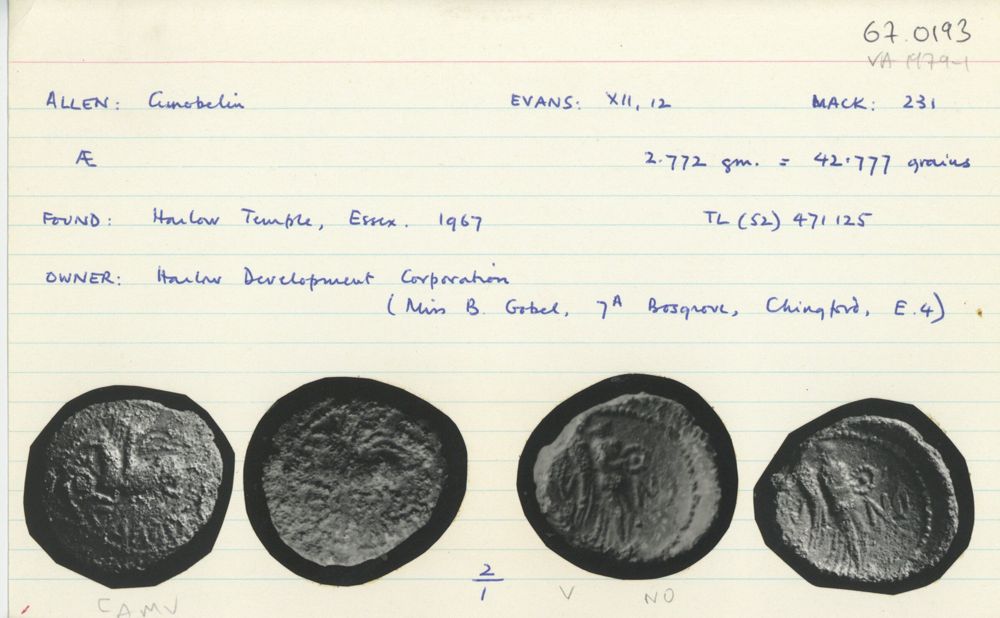 67.0193
VA 1979-1
ALLEN: Cunobelin EVANS: XII, 12 MACK: 231
Æ 2.772 gm. = 42.777 grains
FOUND: Harlow Temple, Essex. 1967 TL (52) 471125
OWNER: Harlow Development Corporation
(Miss B. Gobel, 7A Bosgrove, Chingford, E.4)
2
1
CAMV V NO